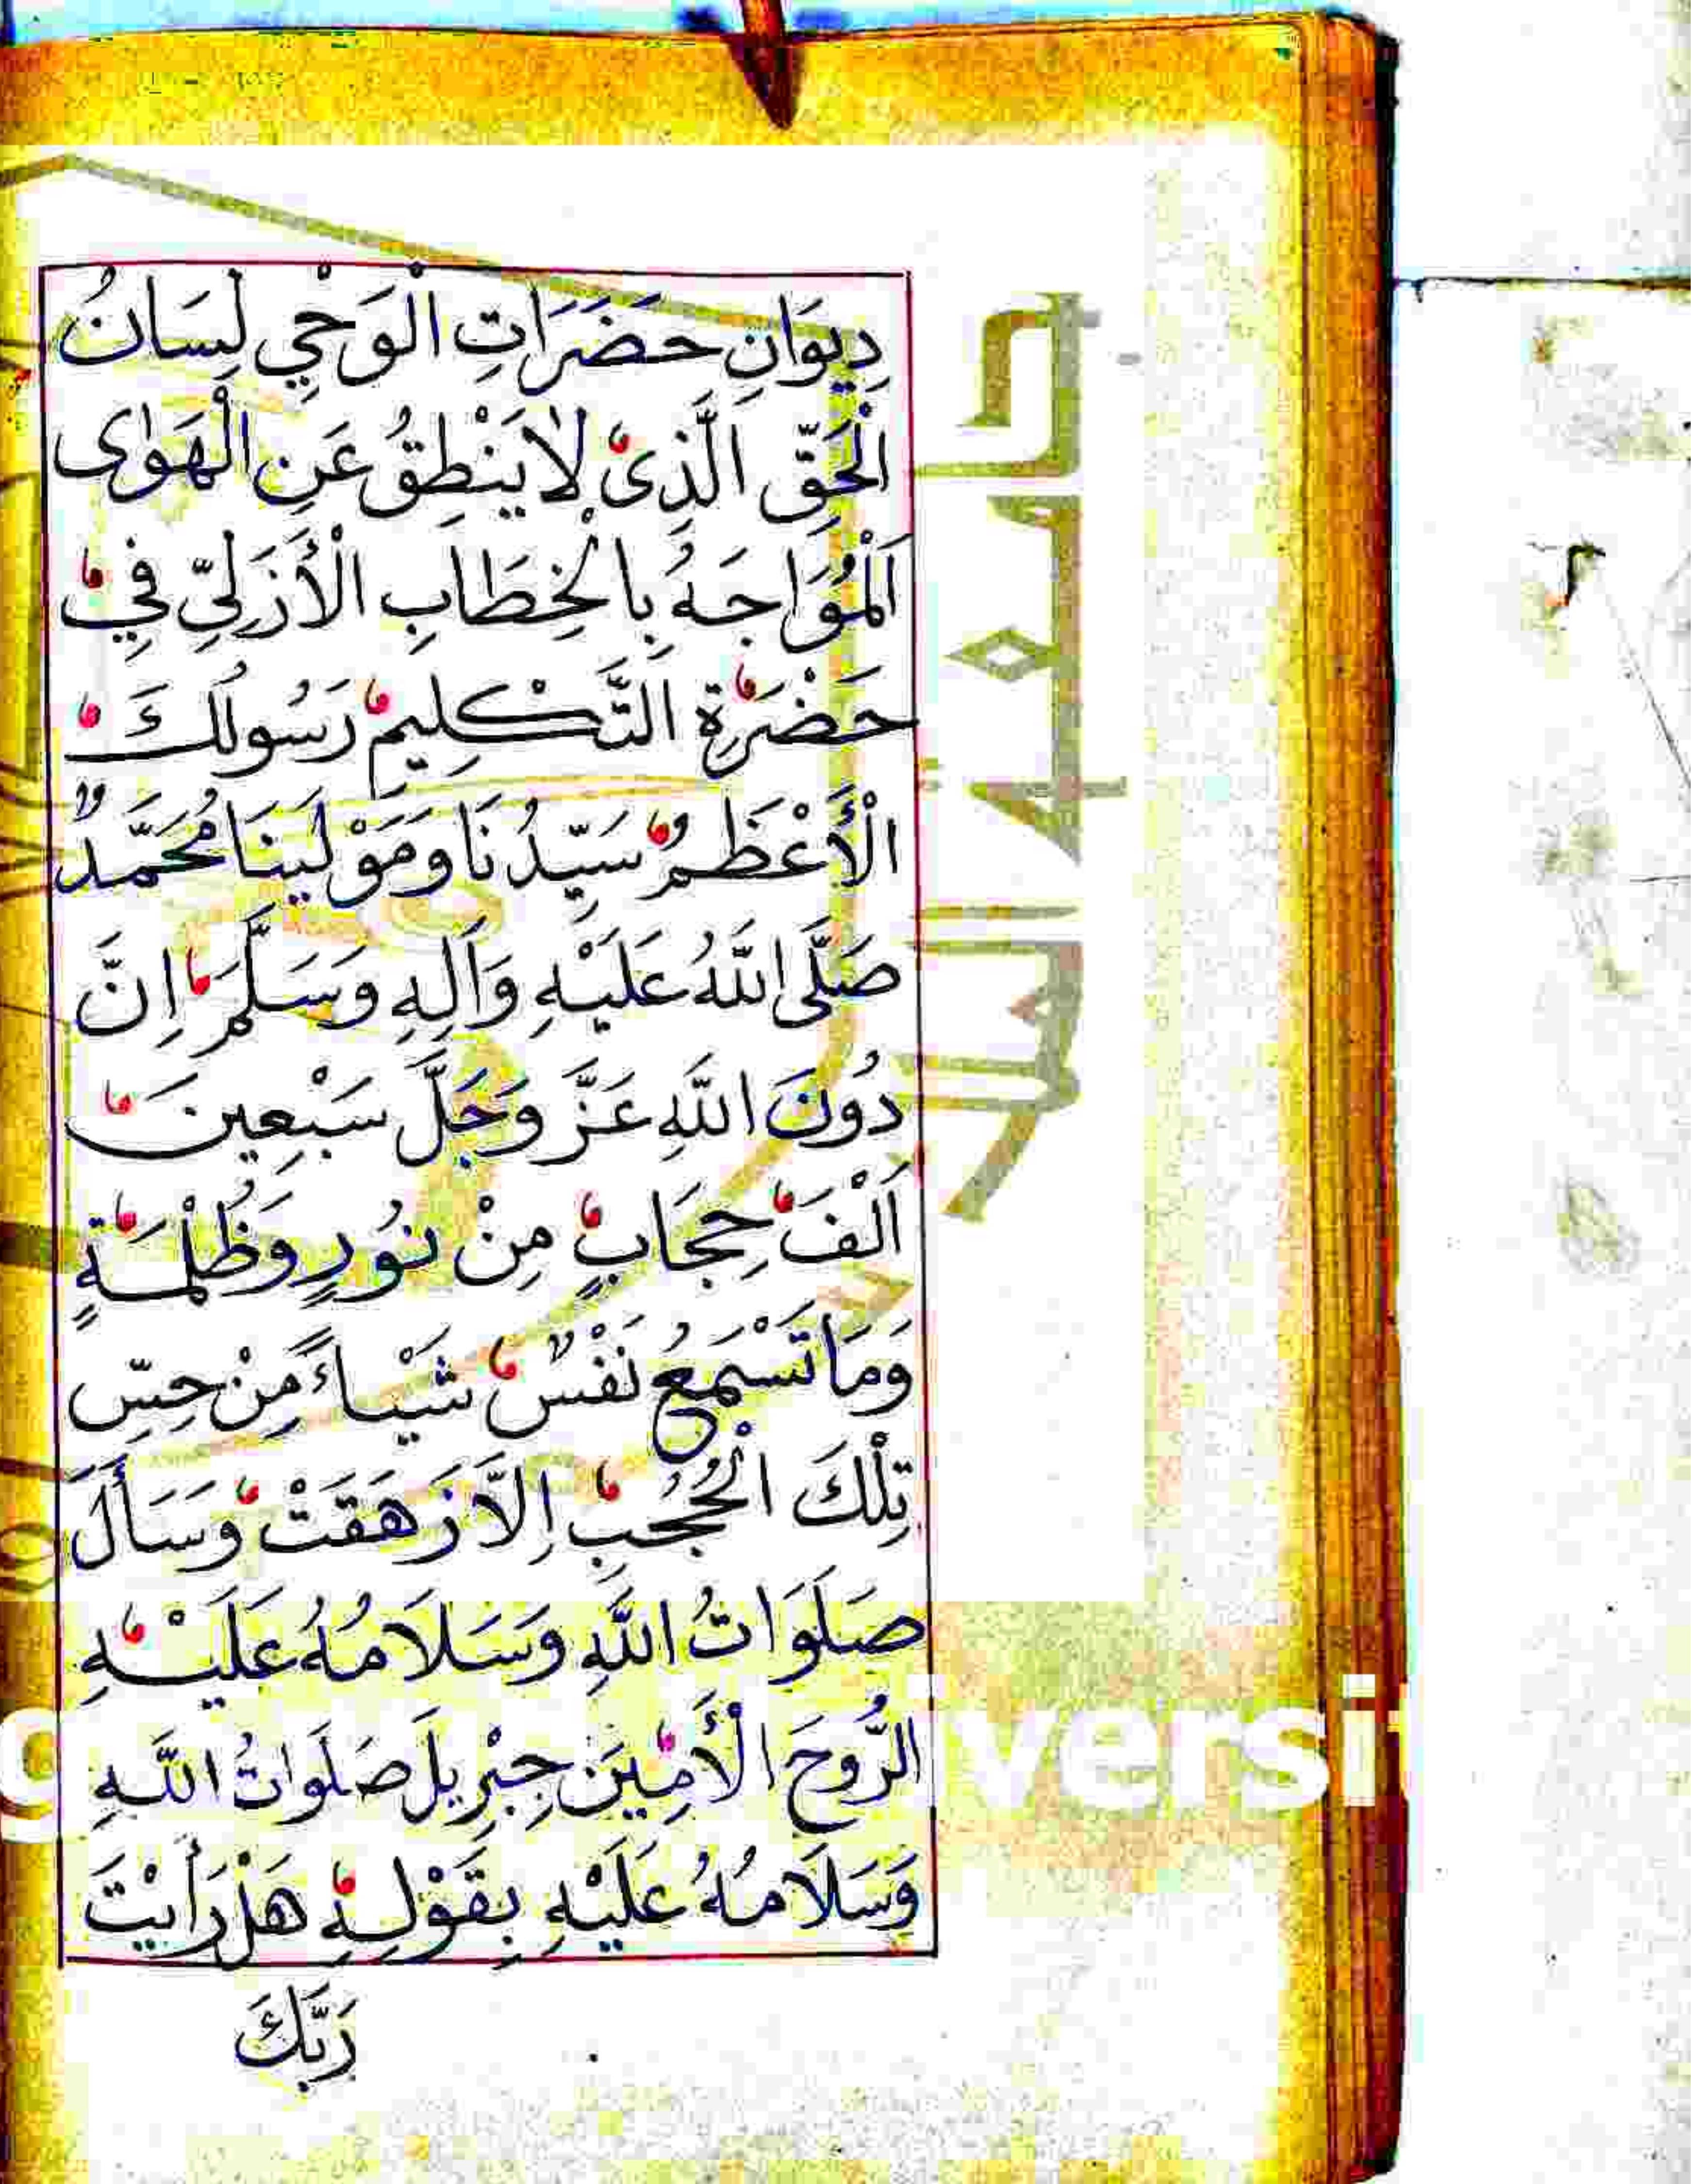 دِيوَانِ حَضَرَاتِ الْوَحْيِ لِسَانُ
الْحَقِّ الَّذِىْ لَايَنْطِقُ عَنِ الْهَوٰى
اَلْمُوَاجَهُ بِالْخِطَابِ الْأَزَلِيِّ فِي
حَضْرَةِ التَّكْلِيمِ رَسُولُكَ
الْأَعْظَمُ سَيِّدُنَا وَمَوْلَينَا مُحَمَّدٌ
صَلَّى اللّٰهُ عَلَيْهِ وَآلِهِ وَسَلَّمَ اِنَّ
دُونَ اللّٰهِ عَزَّ وَجَلَّ سَبْعِينَ
اَلْفَ حِجَابٍ مِنْ نُورٍ وَظُلْمَةٍ
وَمَا تَسْمَعُ نَفْسٌ شَيْاءً مِنْ حِسِّ
تِلْكَ الْحُجُبِ إِلَّا زَهَقَتْ وَسَأَلَ
صَلَوَاتُ اللّٰهِ وَسَلَامُهُ عَلَيْهِ
الرُّوحَ الْأَمِينَ جِبْرِيلَ صَلَوَاتُ اللّٰهِ
وَسَلَامُهُ عَلَيْهِ بِقَوْلِهِ هَلْ رَأَيْتَ
رَبَّكَ
versi